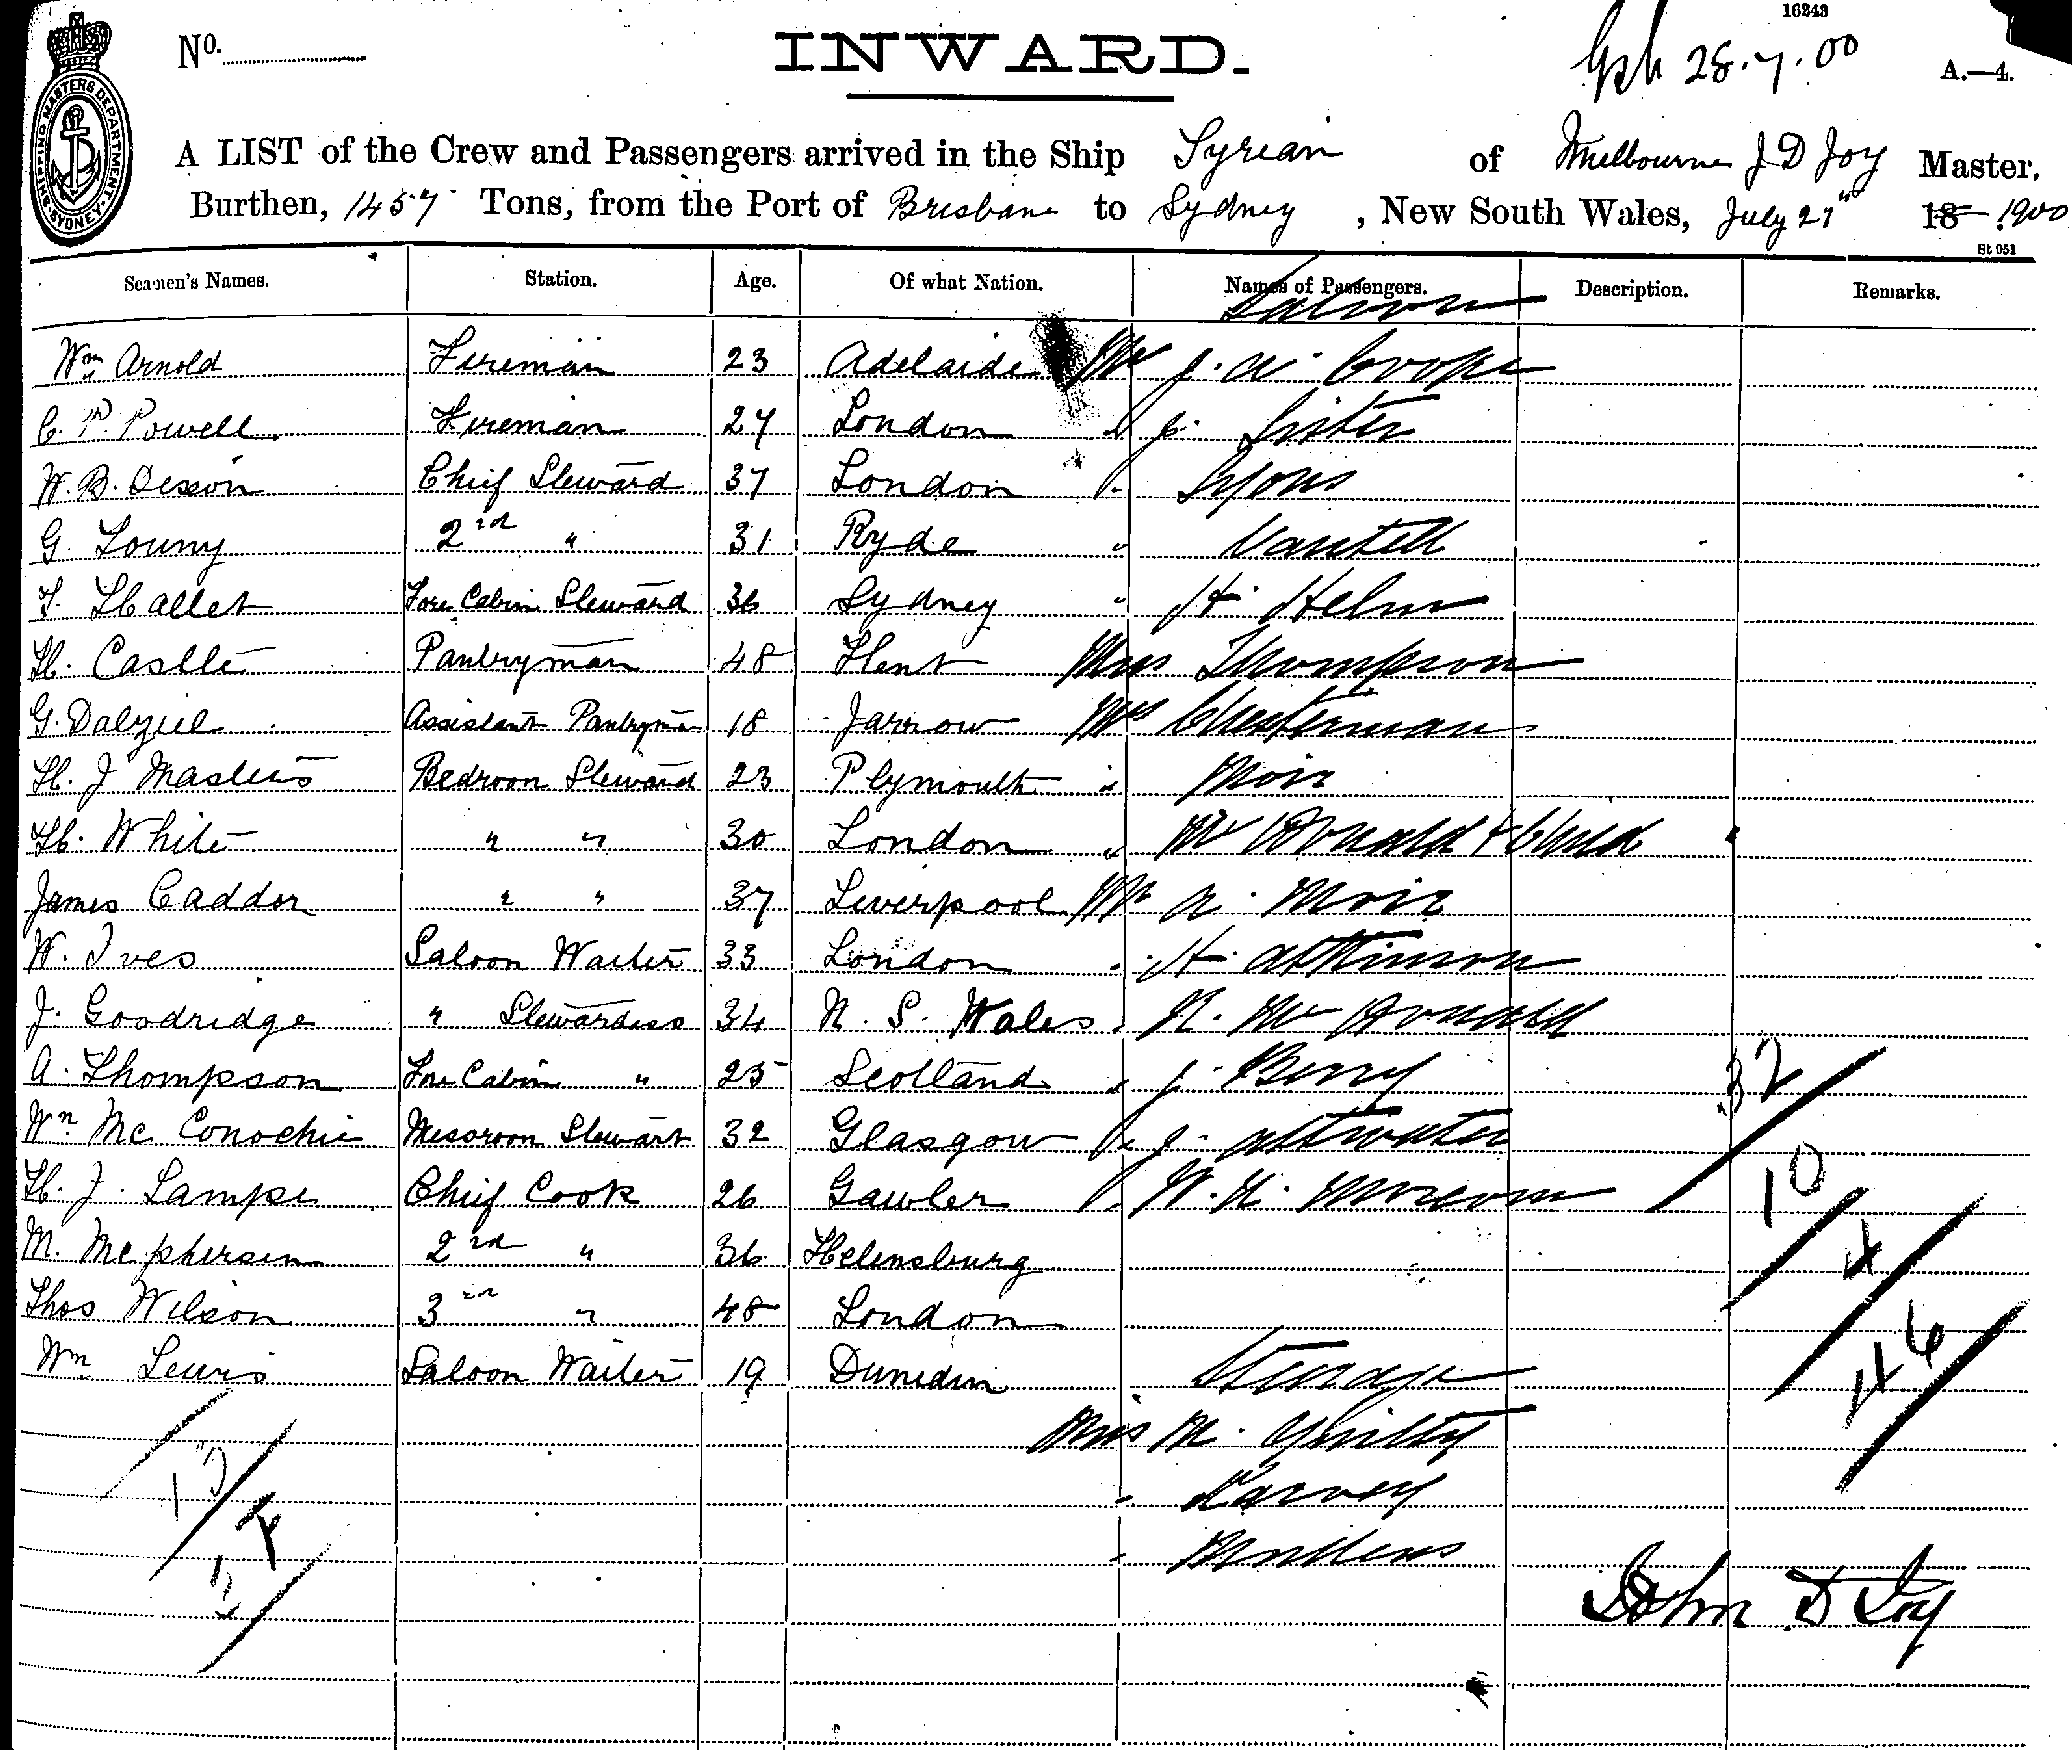 16243
No.
INWARD.
28.7.00
A.—4.
SHIPPING MASTERS DEPARTMENT SYDNEY
A LIST of the Crew and Passengers arrived in the Ship Syrian of Melbourne J D Joy Master,
Burthen, 1457 Tons, from the Port of Brisbane to Sydney, New South Wales, July 27th 18 1900
St 053
Seamen's Names. Station. Age. Of what Nation. Names of Passengers. Description. Remarks.
Saloon
Wm Arnold Fireman 23 Adelaide Mr J. A. Cooper
C. P. Powell Fireman 27 London " J. Lister
W. B. Dixson Chief Steward 37 London " Lyons
G. Louny 2nd " 31 Ryde " Cantell
F. Hallet Fore Cabin Steward 36 Sydney " H. Helm
H. Castle Pantryman 48 Kent Miss Thompson
G. Dalziel Assistant Pantryman 18 Jarrow Mrs Chesterman
H. J Masters Bedroon Steward 23 Plymouth " Moir
H. White " " 30 London " McDonald & Child
James Caddon " " 37 Liverpool Mr A. Moir
W. Ives Saloon Waiter 33 London " H. Atkinson
J. Goodridge " Stewardess 34 N. S. Wales " N. McDonald
A. Thompson Fore Cabin " 25 Scotland " J. Berry
Wm Mc Conochie Messroon Stewart 32 Glasgow " J. Attwater
H. J. Lampe Chief Cook 26 Gawler " W. H. Morcom
M. Mcphersen 2nd " 36 Helensburg
Thos Wilson 3rd " 48 London
Wm Lewis Saloon Waiter 19 Dunedin Steerage
Miss M. Quilty
" Harvey
" Mullens
32
10
4
46
John D Joy